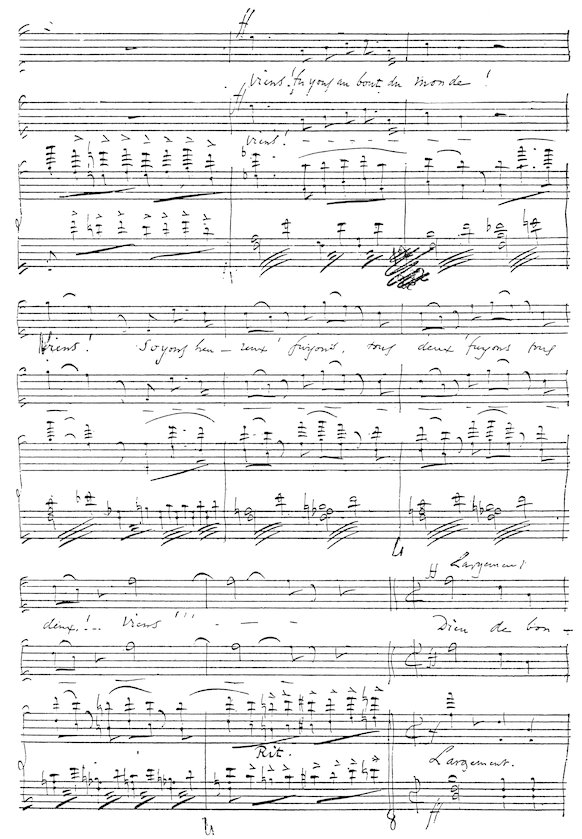 ff
Viens! fuyons au bout du monde!
ff
viens!
Viens! Soyons heu - reux! fuyons, tous deux! fuyons tous
ff Largement
deux!.. Viens!!!
Dieu de bon -
ff
Rit.
Largement.
ff